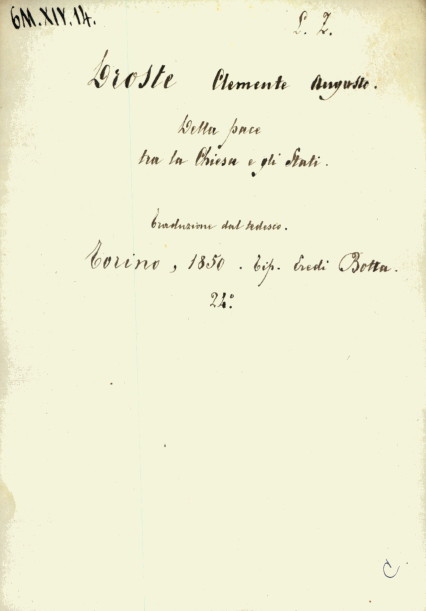 6M.XIV.14.
L. Z.
Droste Clemente Augusto.
Della pace
tra la Chiesa e gli Stati.
Traduzione dal tedesco.
Torino, 1850. Tip. Eredi Botta.
24°
C